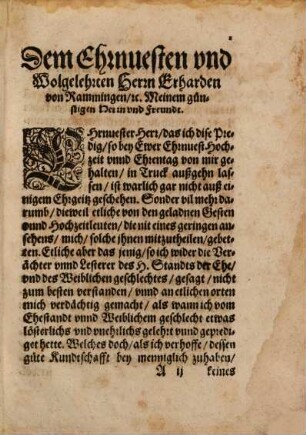 Dem Ehrnuesten vnd
Wolgelehrten Herrn Erharden
von Rammingen/ꝛc. Meinem gün-
stigen Herrn vnd Freundt.
EHrnuester Herr/das ich dise Pre-
dig/so bey Ewer Ehrnuest Hoch-
zeit vnnd Ehrentag von mir ge-
halten/in Truck außgehn las-
sen/ist warlich gar nicht auß ei-
nigem Ehrgeitz geschehen. Sonder vil mehr da-
rumb/dieweil etliche von den geladnen Gesten
vnnd Hochzeitleuten/die nit eines geringen an-
sehens/mich/solche jhnen mitzutheilen/gebet-
ten. Etliche aber das jenig/so ich wider die Ver-
ächter vnnd Lesterer des H. Standes der Ehe/
vnd des Weiblichen geschlechtes/gesagt/nicht
zum besten verstanden/vnnd an etlichen orten
mich verdächtig gemacht/als wann ich vom
Ehestandt vnnd Weiblichem geschlecht etwas
lösterlichs vnd vnehrlichs gelehrt vnnd gepredi-
get hette. Welches doch/als ich verhoffe/dessen
güte Kundtschafft bey menniglich zuhaben/
A ij keines